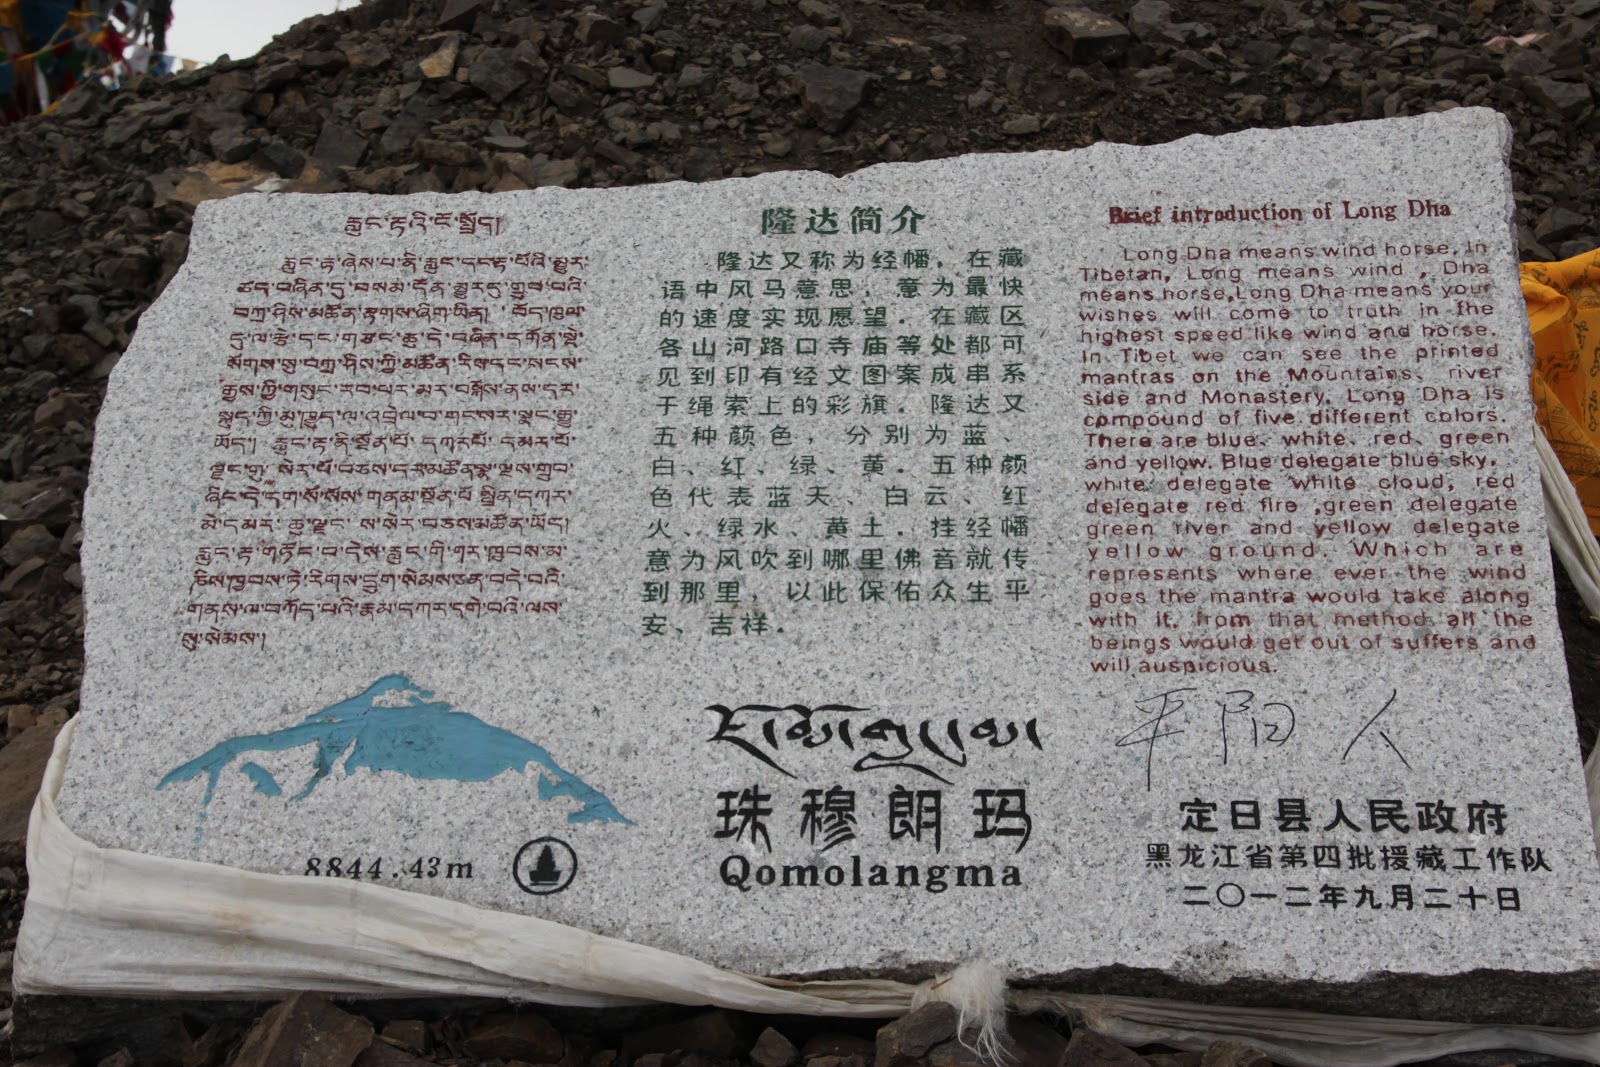 རླུང་རྟའི་ངོ་སྤྲོད།
རླུང་རྟ་ཞེས་པ་ནི་རླུང་དང་རྟ་པོའི་མྱུར་
ཚད་བཞིན་དུ་བསམ་དོན་མྱུར་དུ་གྲུབ་པའི་
བཀྲ་ཤིས་མཚོན་རྟགས་ཞིག་ཡིན། བོད་ཁུལ་
དུ་ལ་རྩེ་དང་གཙང་ཆུ་དེ་བཞིན་དགོན་སྡེ་
སོགས་སུ་བཀྲ་ཤིས་ཀྱི་མཚོན་རིས་དང་སངས་
རྒྱས་ཀྱི་གསུང་རབ་པར་མར་བསྒྲིགས་ནས་དར་
ཡོད། རླུང་རྟ་ནི་སྔོན་པོ་ དཀར་པོ་ དམར་པོ་
མེ་དམར་ ཆུ་ལྗང་ ས་སེར་བཅས་མཚོན་ཡོད།
隆达简介
隆达又称为经幡，在藏
语中风马意思，意为最快
的速度实现愿望．在藏区
各山河路口寺庙等处都可
见到印有经文图案成串系
于绳索上的彩旗．隆达又
五种颜色，分别为蓝、
白、红、绿、黄．五种颜
色代表蓝天、白云、红
火、绿水、黄土．挂经幡
意为风吹到哪里佛音就传
到那里，以此保佑众生平
安、吉祥．
Brief introduction of Long Dha
Long Dha means wind horse. In
Tibetan, Long means wind , Dha
means horse,Long Dha means your
wishes will come to truth in the
highest speed like wind and horse.
In Tibet we can see the printed
mantras on the Mountains、river
side and Monastery. Long Dha is
compound of five different colors.
There are blue、white、red、green
and yellow. Blue delegate blue sky,
white delegate white cloud, red
delegate red fire ,green delegate
green river and yellow delegate
yellow ground. Which are
represents where ever the wind
goes the mantra would take along
with it. from that method all the
beings would get out of suffers and
will auspicious.
8844.43m
ཇོ་མོ་གླང་མ།
珠穆朗玛
Qomolangma
平阳人
定日县人民政府
黑龙江省第四批援藏工作队
二〇一二年九月二十日